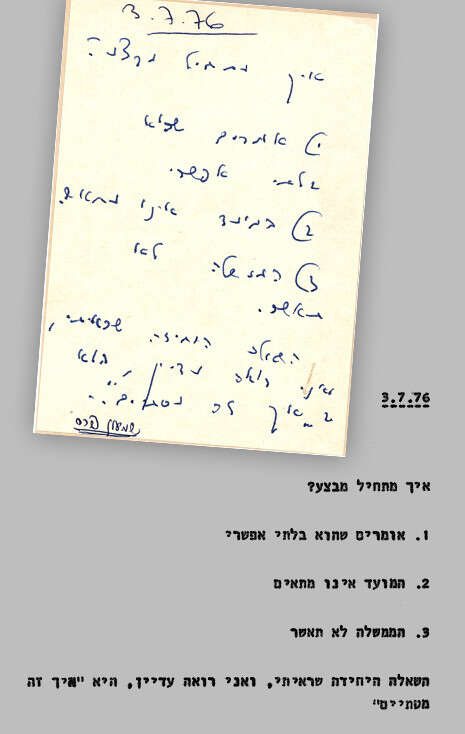 3.7.76
איך מתחיל מבצע?
1) אומרים שהוא
בלתי אפשרי.
2) המועד אינו מתאים.
3) הממשלה לא
תאשר.
השאלה היחידה שראיתי,
ואני רואה עדיין, היא
"איך זה מסתיים".
שמעון פרס
3.7.76
איך מתחיל מבצע?
1. אומרים שהוא בלתי אפשרי
2. המועד אינו מתאים
3. הממשלה לא תאשר
השאלה היחידה שראיתי, ואני רואה עדיין, היא "איך זה
מסתיים"